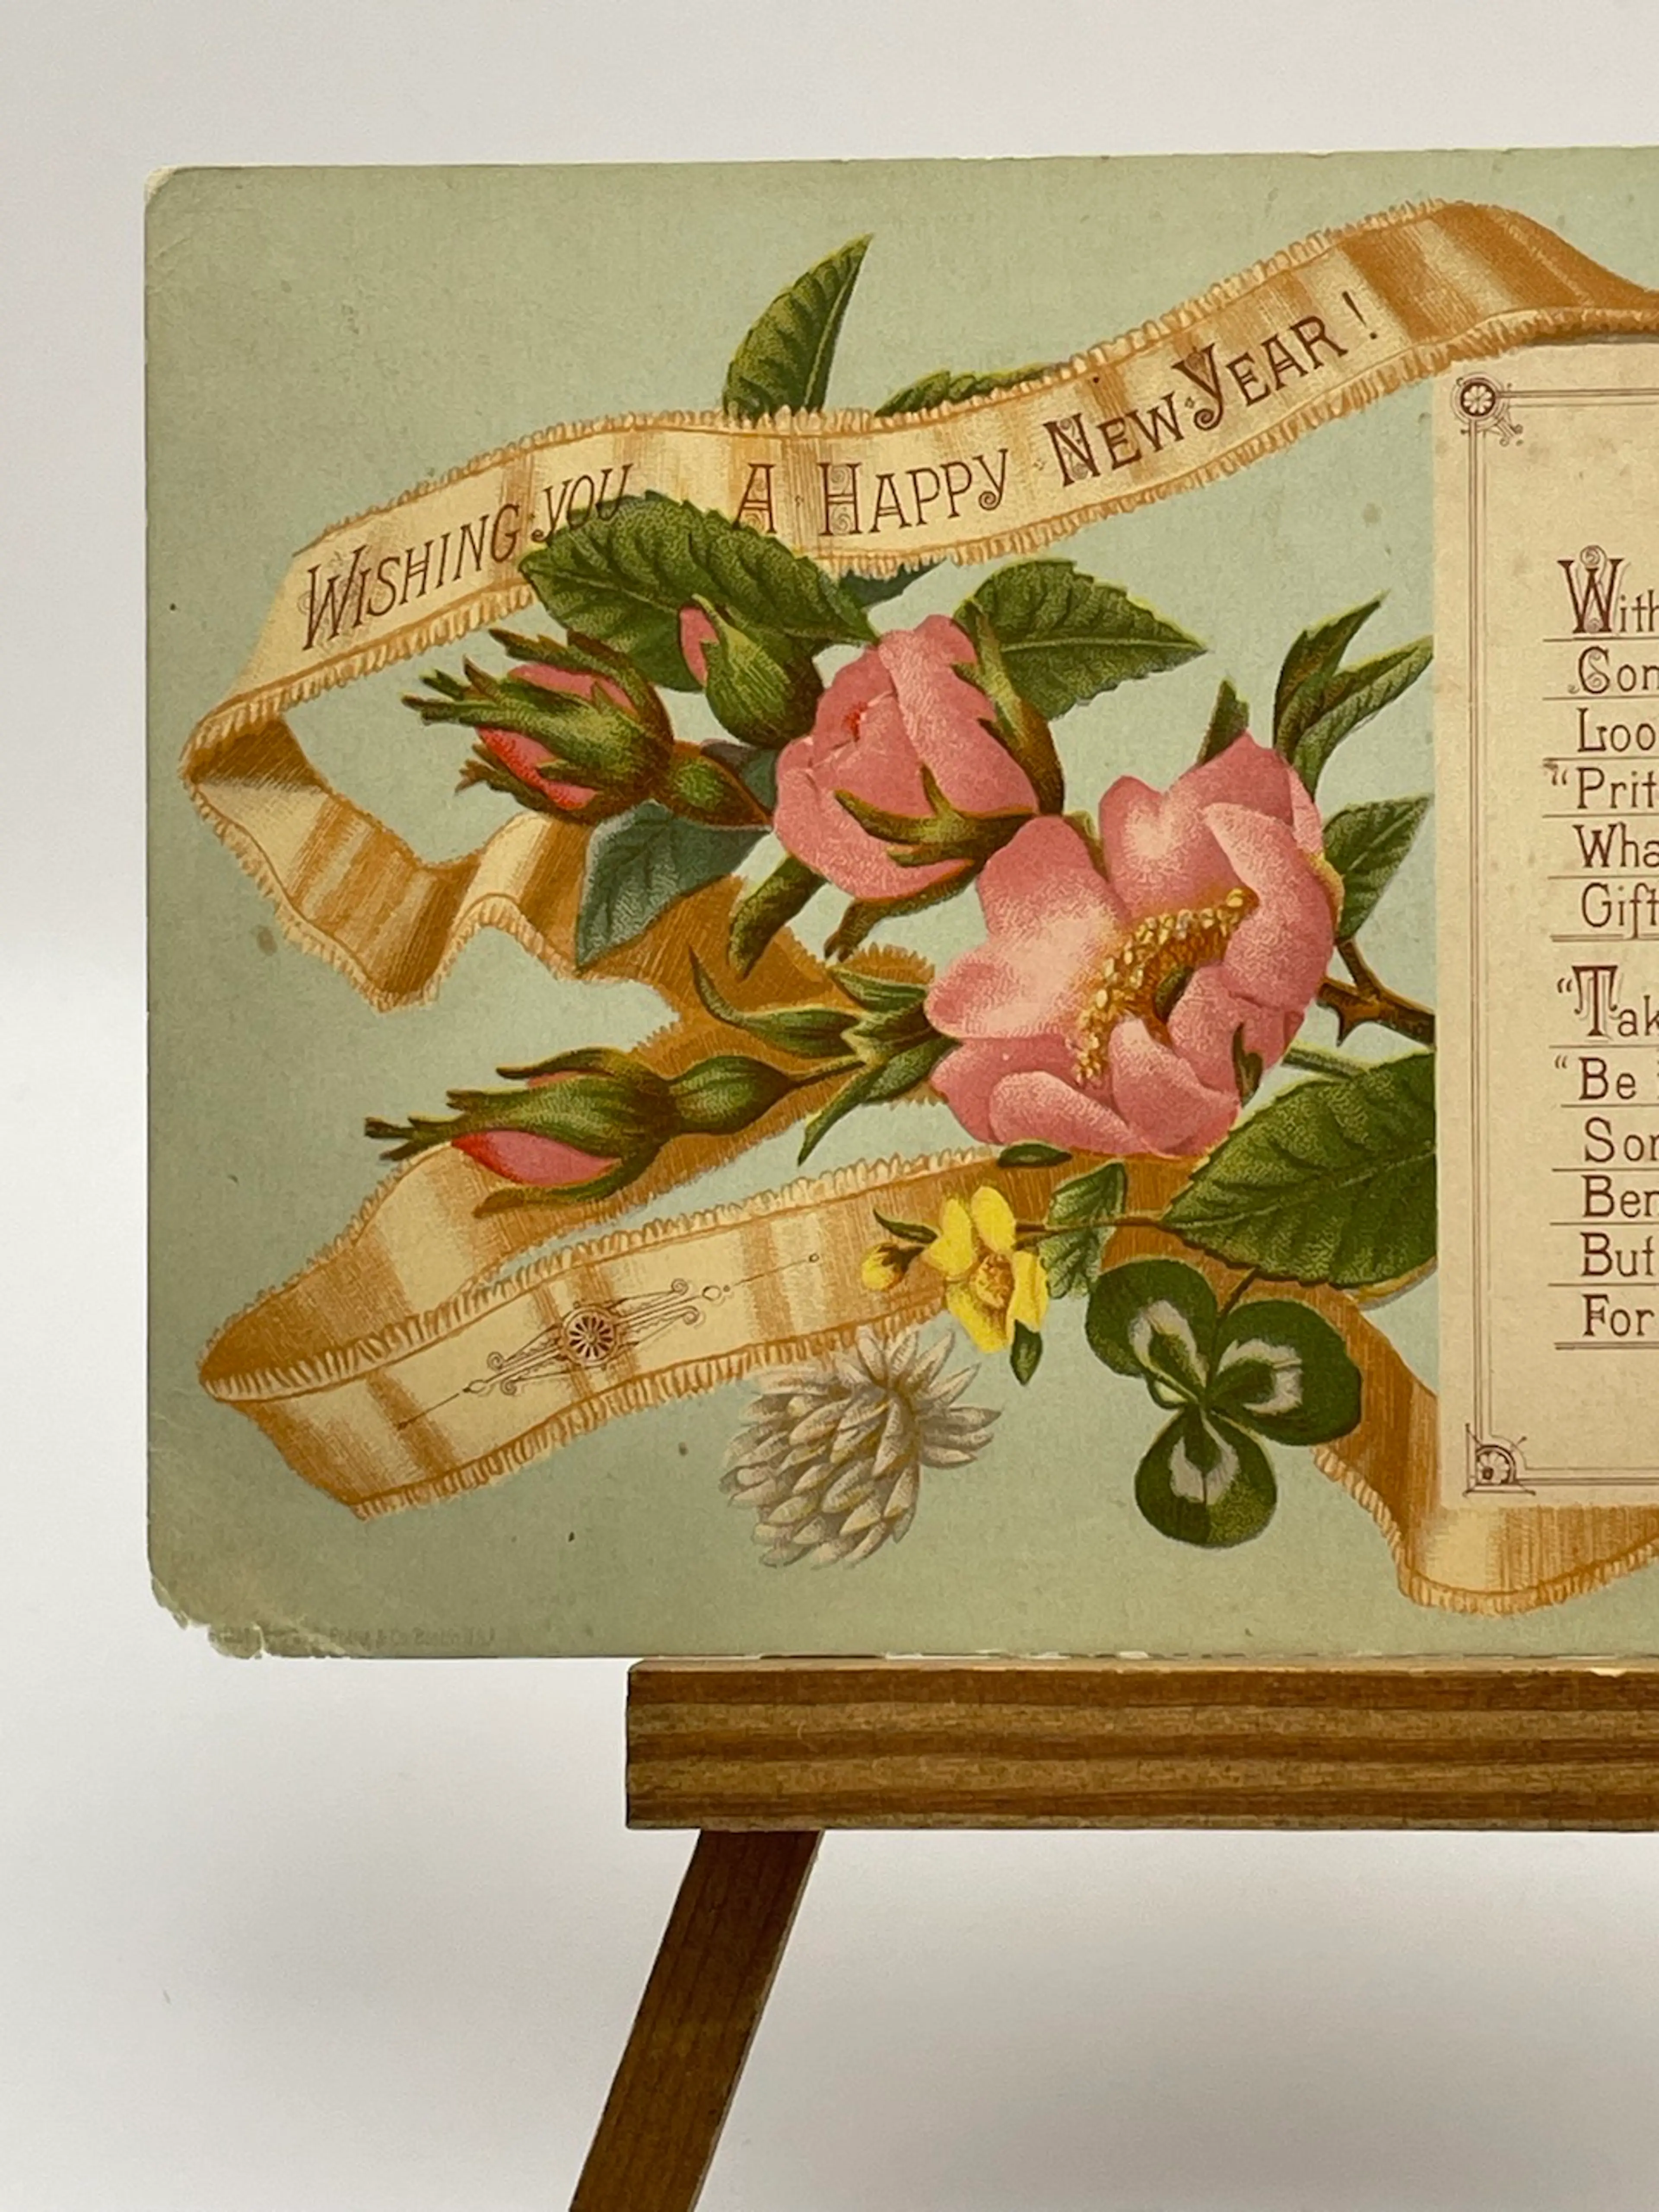 WISHING YOU A HAPPY NEW YEAR!
With
Loo
"Prit
Wha
Gift
"Tak
"Be
Son
Ben
But
For
& Co. Boston U.S.A.